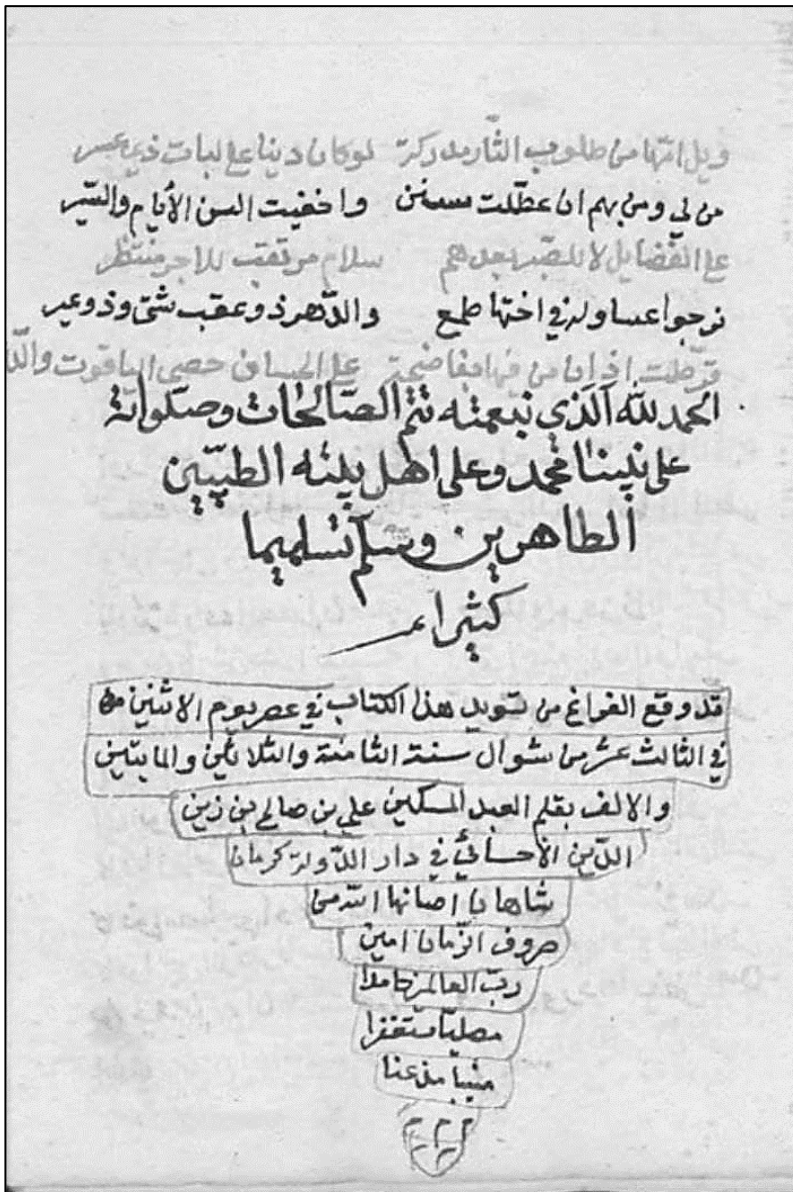 ويل انها من طلوب الثار مدركة لوكان دينا على لبات ذي عسر
من لي ومن بهم ان عطلت سنن واخفيت السن الأيام والسير
على الفضايل لا للصبر بعدهم سلام مرتقب للاجر منتظر
نرجوا عسا وله في اختها طمع والدهر ذو عقب شتى وذو غير
قرطت اذان من فيها بفاضحة على الحسان حصى الياقوت
الحمد لله الذي بنعمته تتم الصالحات وصلواته
على نبينا محمد وعلى اهل بيته الطيبين
الطاهرين وسلم تسليما
كثيرا
قد وقع الفراغ من تسويد هذا الكتاب في عصر يوم الاثنين
في الثالث عشر من شوال سنة الثامنة والثلاثين والمايتين
والالف بقلم العبد المسكين علي بن صالح بن زين
الدين الأحسائي في دار الدولة كرمان
شاهان اصانها الله من
صروف الزمان امين
رب العالمين حامدا
مصليا مستغفرا
منيبا مذعنا